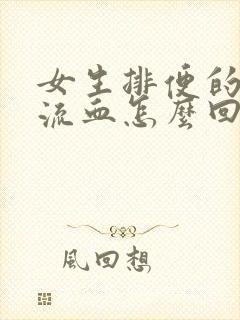 女生排便的
流血怎麼回
風回想